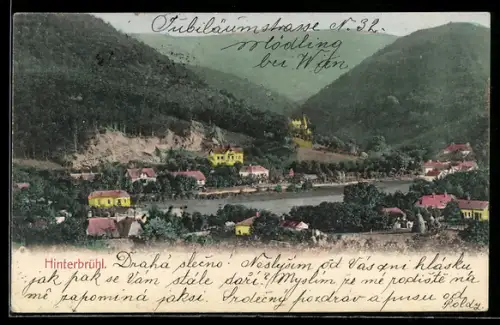 Jubiläumstrasse N. 32.
Mödling
bei Wien
Hinterbrühl.
Drahá slečno! Neslyším od Vás zni hlásku
jak pak se Vám stále daří? Myslím že mé podiště na
mé zapomíná jaksi. Srdečný pozdrav a pusu od
Poldy